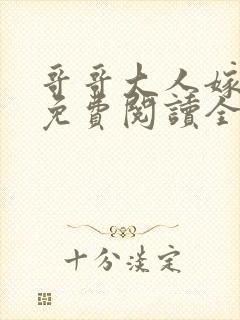 哥哥大人嫁
免費閱讀全
十分淡定